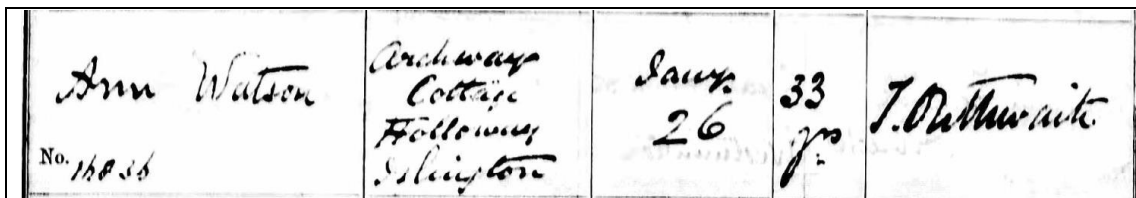 Ann Watson
No. 14036
Archway
Cottage
Holloway
Islington
Jany
26
33
yrs